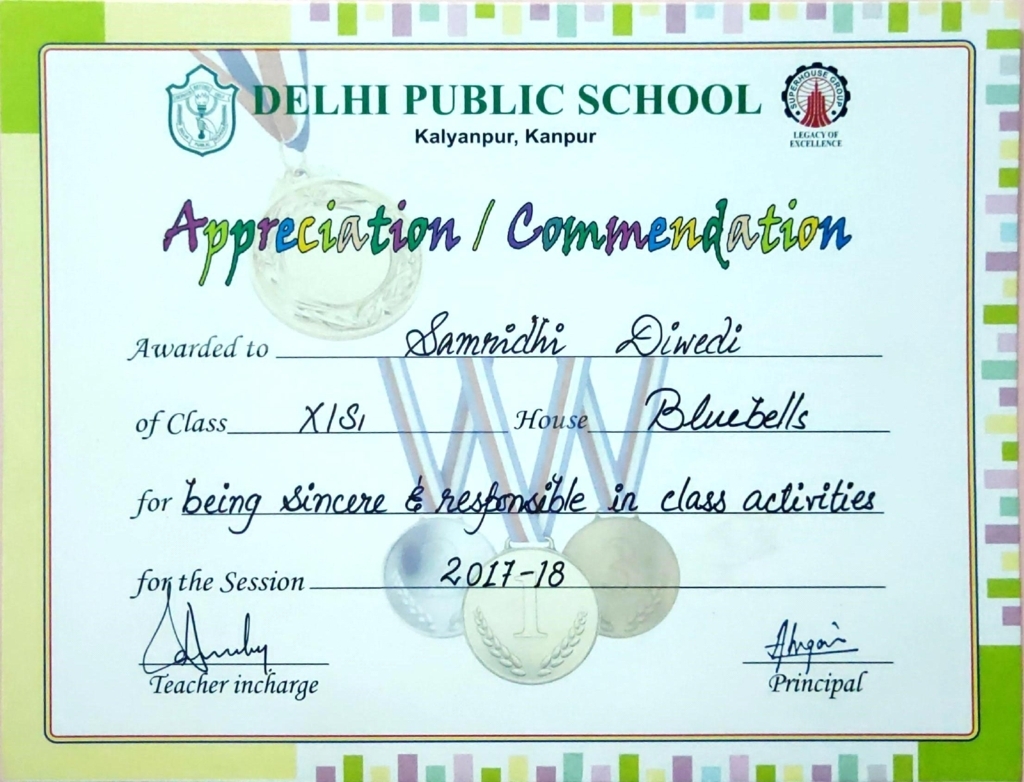 DELHI PUBLIC SCHOOL
Kalyanpur, Kanpur
SUPERHOUSE GROUP
LEGACY OF
EXCELLENCE
Appreciation / Commendation
Awarded to Samridhi Diwedi
of Class XIS1 House Bluebells
for being sincere & responsible in class activities
for the Session 2017-18
1
Teacher incharge Principal